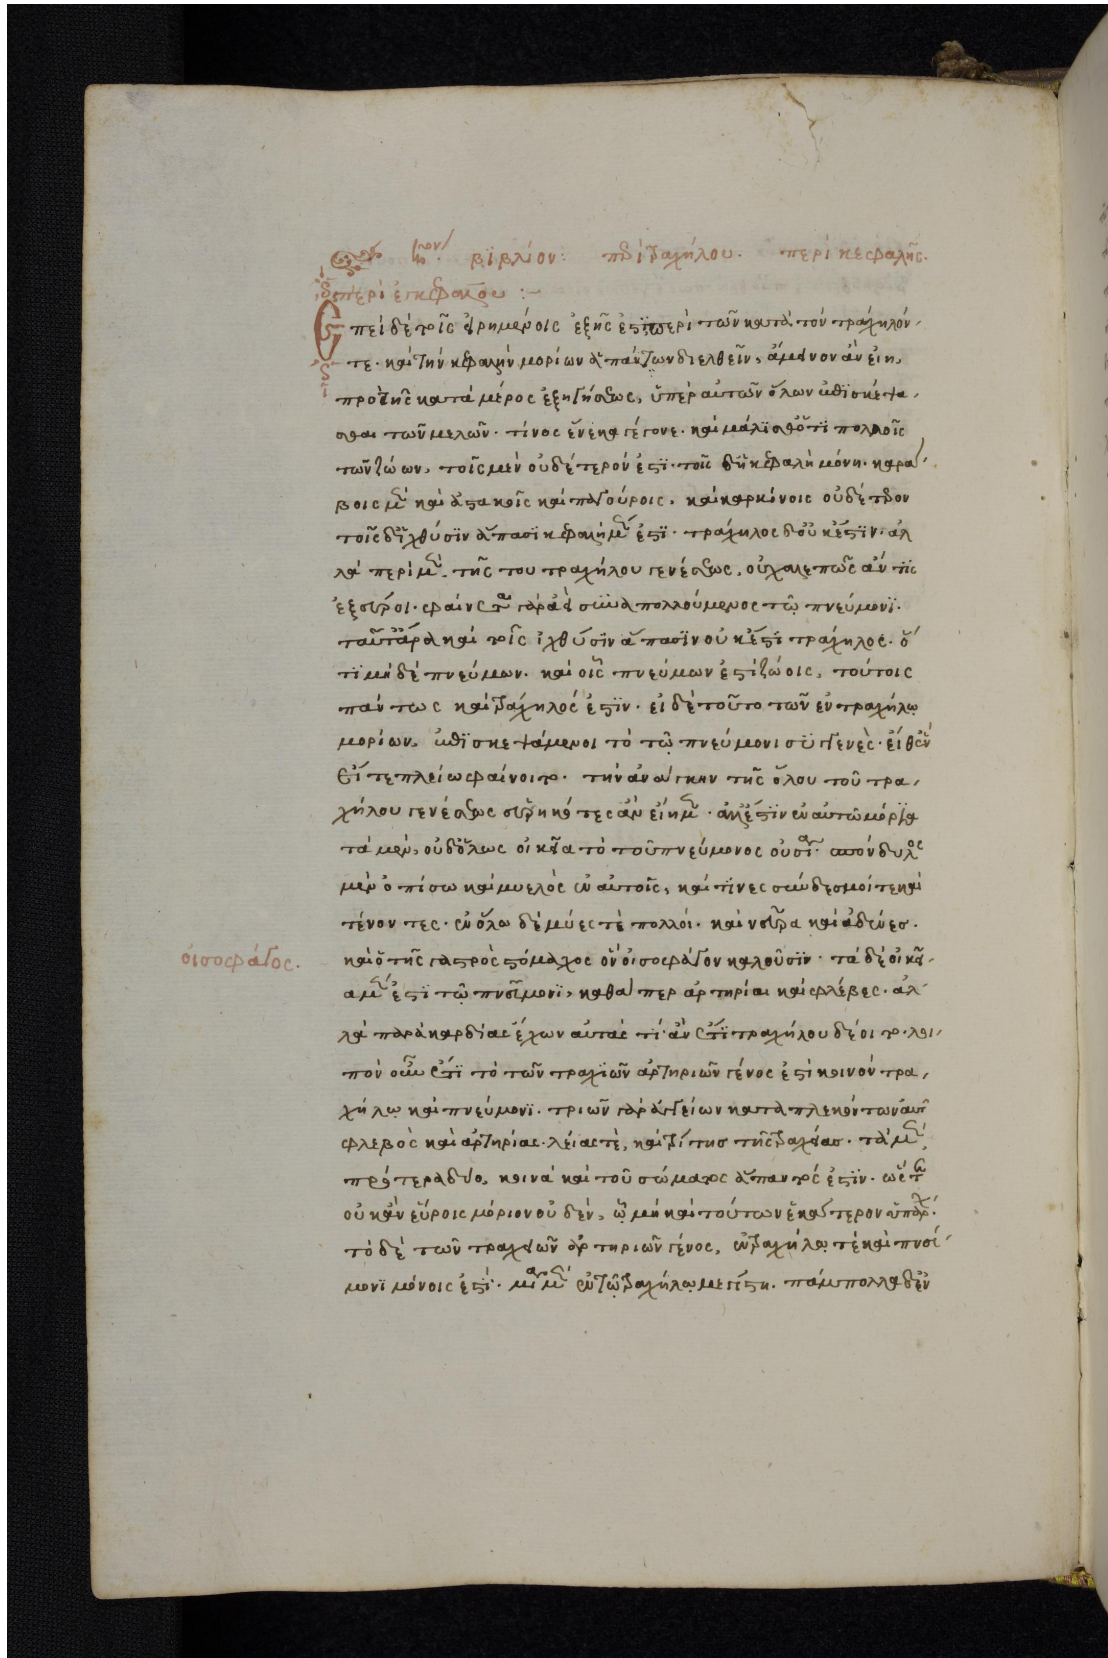 η´ον βϊβλίον: περὶ τραχήλου. περὶ κεφαλῆς.
περὶ ἐγκεφάλου :-
Ἐπεὶ δὲ τοῖς εἰρημένοις ἑξῆς ἐστϊ περὶ τῶν κατὰ τὸν τράχηλόν
τε· καὶ τὴν κεφαλὴν μορίων ἁπάντων διελθεῖν, ἄμεινον ἂν εἴη,
πρὸ τῆς κατὰ μέρος ἐξηγήσεως, ὑπὲρ αὐτῶν ὅλων ἐπϊσκέψα
σθαι τῶν μελῶν· τίνος ἕνεκα γέγονε· καὶ μάλϊσθ' ὅτϊ πολλοῖς
τῶν ζώων, τοῖς μὲν οὐδέτερόν ἐστϊ· τοῖς δ' ἡ κεφαλὴ μόνη· καρά
βοις μὲν καὶ ἀστακοῖς καὶ παγούροις, καὶ καρκίνοις οὐδέτερον
τοῖς δ' ἰχθύσϊν ἅπασϊ κεφαλὴ μὲν ἐστϊ· τράχηλος δ' οὐκ ἔστϊν· ἀλ
λὰ περὶ μὲν τῆς του τραχήλου γενέσεως, οὐ χαλεπῶς ἄν τϊς
ἐξεύροι· φαίνεται γὰρ ἀεὶ συναπολλούμενος τῷ πνεύμονϊ·
ταῦτ' ἄρα καὶ τοῖς ἰχθύσϊν ἅπασϊν οὐκ ἔστϊ τράχηλος· ὅ
τϊ μὴ δὲ πνεύμων· καὶ οἷς πνεύμων ἐστὶ ζώοις, τούτοις
πάντως καὶ τράχηλός ἐστϊν· εἰ δὲ τοῦτο τῶν ἐν τραχήλῳ
μορίων, ἐπϊσκεψάμενοι τὸ τῷ πνεύμονι συγγενὲς· εἴθ' ἓν
εἴτε πλείω φαίνοιτο· τὴν ἀνάγκην τῆς ὅλου τοῦ τρα
χήλου γενέσεως εὑρηκότες ἂν εἴημεν· ἀλλ' ἔστϊν ἐν αὐτῷ μόρϊα
τὰ μὲν, οὐδ' ὅλως οἰκεῖα τὸ τοῦ πνεύμονος οὐσίᾳ· σπόνδυλος
μὲν ὀπίσω καὶ μυελὸς ἐν αὐτοῖς, καὶ τϊνες σύνδεσμοί τε καὶ
τένοντες· ἐν ὅλω δὲ μύες τὲ πολλοὶ· καὶ νεῦρα καὶ ἀδένες·
οἰσοφάγος.
καὶ ὁ τῆς γαστρὸς στόμαχος ὃν οἰσοφάγον καλοῦσϊν· τὰ δὲ οἰκεῖ
α μὲν ἐστϊ τῷ πνεύμονϊ, καθάπερ ἀρτηρίαι καὶ φλέβες· ἀλ
λὰ παρὰ καρδίας ἔχων αὐτὰς τί ἂν ἔτϊ τραχήλου δέοιτο· λοι
πὸν οὖν ἔτϊ τὸ τῶν τραχϊῶν ἀρτηριῶν γένος ἐστὶ κοινὸν τρα
χήλῳ καὶ πνεύμονϊ· τριῶν γὰρ ἀγγείων καταπλεκόντων αὐτὸν
φλεβὸς καὶ ἀρτηρίας λείας τὲ, καὶ τρίτης τῆς τραχείας· τὰ μὲν
πρότερα δύο, κοινὰ καὶ τοῦ σώματος ἅπαντός ἐστϊν·
οὐκ ἂν εὕροις μόριον οὐδὲν, ᾧ μὴ καὶ τούτων ἑκάτερον ὑπάρχει·
τὸ δὲ τῶν τραχειῶν ἀρτηριῶν γένος, ἐν τραχήλῳ τὲ καὶ πνεύ
μονϊ μόνοις ἐστὶ· μία μὲν ἐν τῷ τραχήλῳ μεγίστη· πάμπολλα δ' ἐν